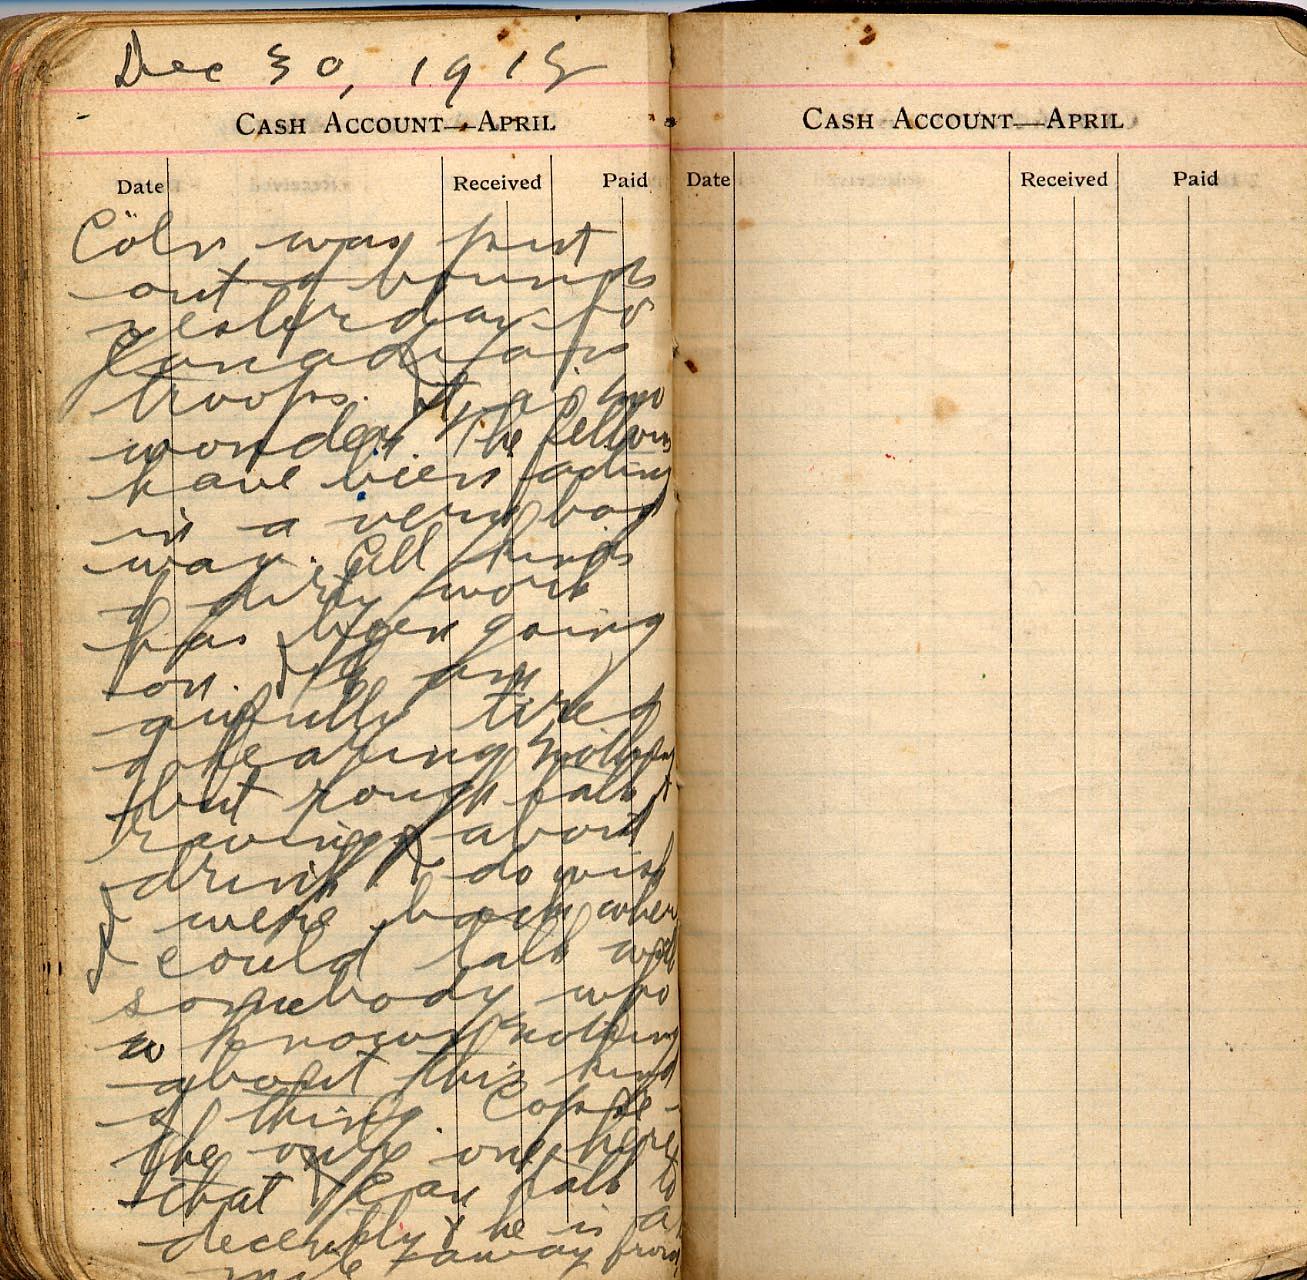 Dec 30, 1918
CASH ACCOUNT—APRIL
Date Received Paid
Cöln was put
out of bounds
yesterday to
Canadian
troops. It is no
wonder. The fellows
have been acting
in a very bad
way. All kinds
of dirty work
has been going
on. I am
awfully tired
of hearing nothing
but rough talk &
raving about
drink. I do wish
I were back where
I could talk with
somebody who
knows nothing
about this kind
of thing.
the only one here
that I can talk to
decently & he is a
mile away from
CASH ACCOUNT—APRIL
Date Received Paid